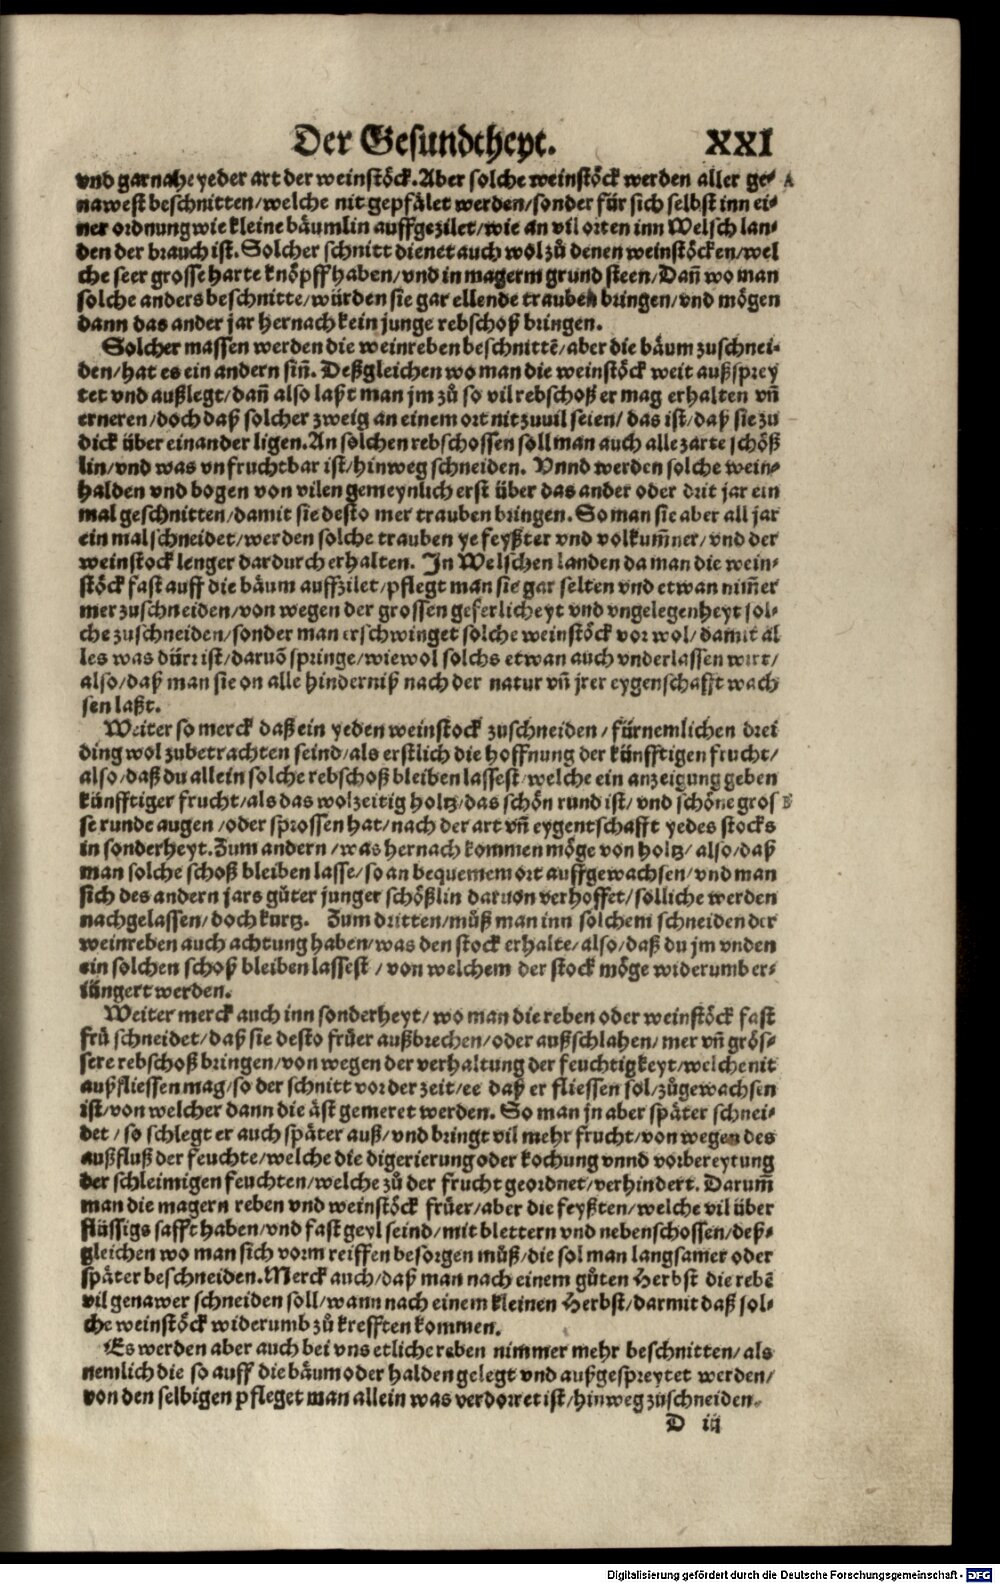 Der Gesundtheyt. XXI
vnd gar nahe yeder art der weinstöck. Aber solche weinstöck werden aller ge⸗ A
nawest beschnitten/welche nit gepfälet werden/sonder für sich selbst inn ei⸗
ner ordnung wie kleine bäumlin auffgezilet/wie an vil orten inn Welsch lan⸗
den der brauch ist. Solcher schnitt dienet auch wol zů denen weinstöcken/wel
che seer grosse harte knöpff haben/vnd in magerm grund steen/Dañ wo man
solche anders beschnitte/würden sie gar ellende trauben bringen/vnd mögen
dann das ander jar hernach kein junge rebschoß bringen.
Solcher massen werden die weinreben beschnittẽ/aber die bäum zuschnei⸗
den/hat es ein andern siñ. Deßgleichen wo man die weinstöck weit außsprey
tet vnd außlegt/dañ also laßt man jm zů so vil rebschoß er mag erhalten vñ
erneren/doch daß solcher zweig an einem ort nit zuuil seien/das ist/daß sie zu
dick über einander ligen. An solchen rebschossen soll man auch alle zarte schöß
lin/vnd was vnfruchtbar ist/hinweg schneiden. Vnnd werden solche wein⸗
halden vnd bogen von vilen gemeynlich erst über das ander oder drit jar ein
mal geschnitten/damit sie desto mer trauben bringen. So man sie aber all jar
ein mal schneidet/werden solche trauben ye feyßter vnd volkum̃ner/vnd der
weinstock lenger dardurch erhalten. In Welschen landen da man die wein⸗
stöck fast auff die bäum auffzilet/pflegt man sie gar selten vnd etwan nim̃er
mer zuschneiden/von wegen der grossen geferlicheyt vnd vngelegenheyt sol⸗
che zuschneiden/sonder man erschwinget solche weinstöck vor wol/damit al
les was dürr ist/daruõ springe/wiewol solchs etwan auch vnderlassen wirt/
also/daß man sie on alle hinderniß nach der natur vñ jrer eygenschafft wach
sen laßt.
Weiter so merck daß ein yeden weinstock zuschneiden/fürnemlichen drei
ding wol zubetrachten seind/als erstlich die hoffnung der künfftigen frucht/
also/daß du allein solche rebschoß bleiben lassest/welche ein anzeigung geben
künfftiger frucht/als das wolzeitig holtz/das schön rund ist/vnd schöne gros B
se runde augen/oder sprossen hat/nach der art vñ eygentschafft yedes stocks
in sonderheyt. Zum andern/was hernach kommen möge von holtz/also/daß
man solche schoß bleiben lasse/so an bequemem ort auffgewachsen/vnd man
sich des andern jars gůter junger schößlin daruon verhoffet/sölliche werden
nachgelassen/doch kurtz. Zum dritten/můß man inn solchem schneiden der
weinreben auch achtung haben/was den stock erhalte/also/daß du jm vnden
ein solchen schoß bleiben lassest/von welchem der stock möge widerumb er⸗
längert werden.
Weiter merck auch inn sonderheyt/wo man die reben oder weinstöck fast
frů schneidet/daß sie desto früer außbrechen/oder außschlahen/mer vñ grös⸗
sere rebschoß bringen/von wegen der verhaltung der feuchtigkeyt/welche nit
außfliessen mag/so der schnitt vor der zeit/ee daß er fliessen sol/zůgewachsen
ist/von welcher dann die äst gemeret werden. So man jn aber später schnei⸗
det/so schlegt er auch später auß/vnd bringt vil mehr frucht/von wegen des
außfluß der feuchte/welche die digerierung oder kochung vnnd vorbereytung
der schleimigen feuchten/welche zů der frucht geordnet/verhindert. Darum̃
man die magern reben vnd weinstöck früer/aber die feyßten/welche vil über
flüssigs safft haben/vnd fast geyl seind/mit blettern vnd nebenschossen/deß⸗
gleichen wo man sich vorm reiffen besorgen můß/die sol man langsamer oder
später beschneiden. Merck auch/daß man nach einem gůten Herbst die rebẽ
vil genawer schneiden soll/wann nach einem kleinen Herbst/darmit daß sol⸗
che weinstöck widerumb zů krefften kommen.
Es werden aber auch bei vns etliche reben nimmer mehr beschnitten/als
nemlich die so auff die bäum oder halden gelegt vnd außgespreytet werden/
von den selbigen pfleget man allein was verdorret ist/hinweg zůschneiden.
D iij
Digitalisierung gefördert durch die Deutsche Forschungsgemeinschaft - DFG